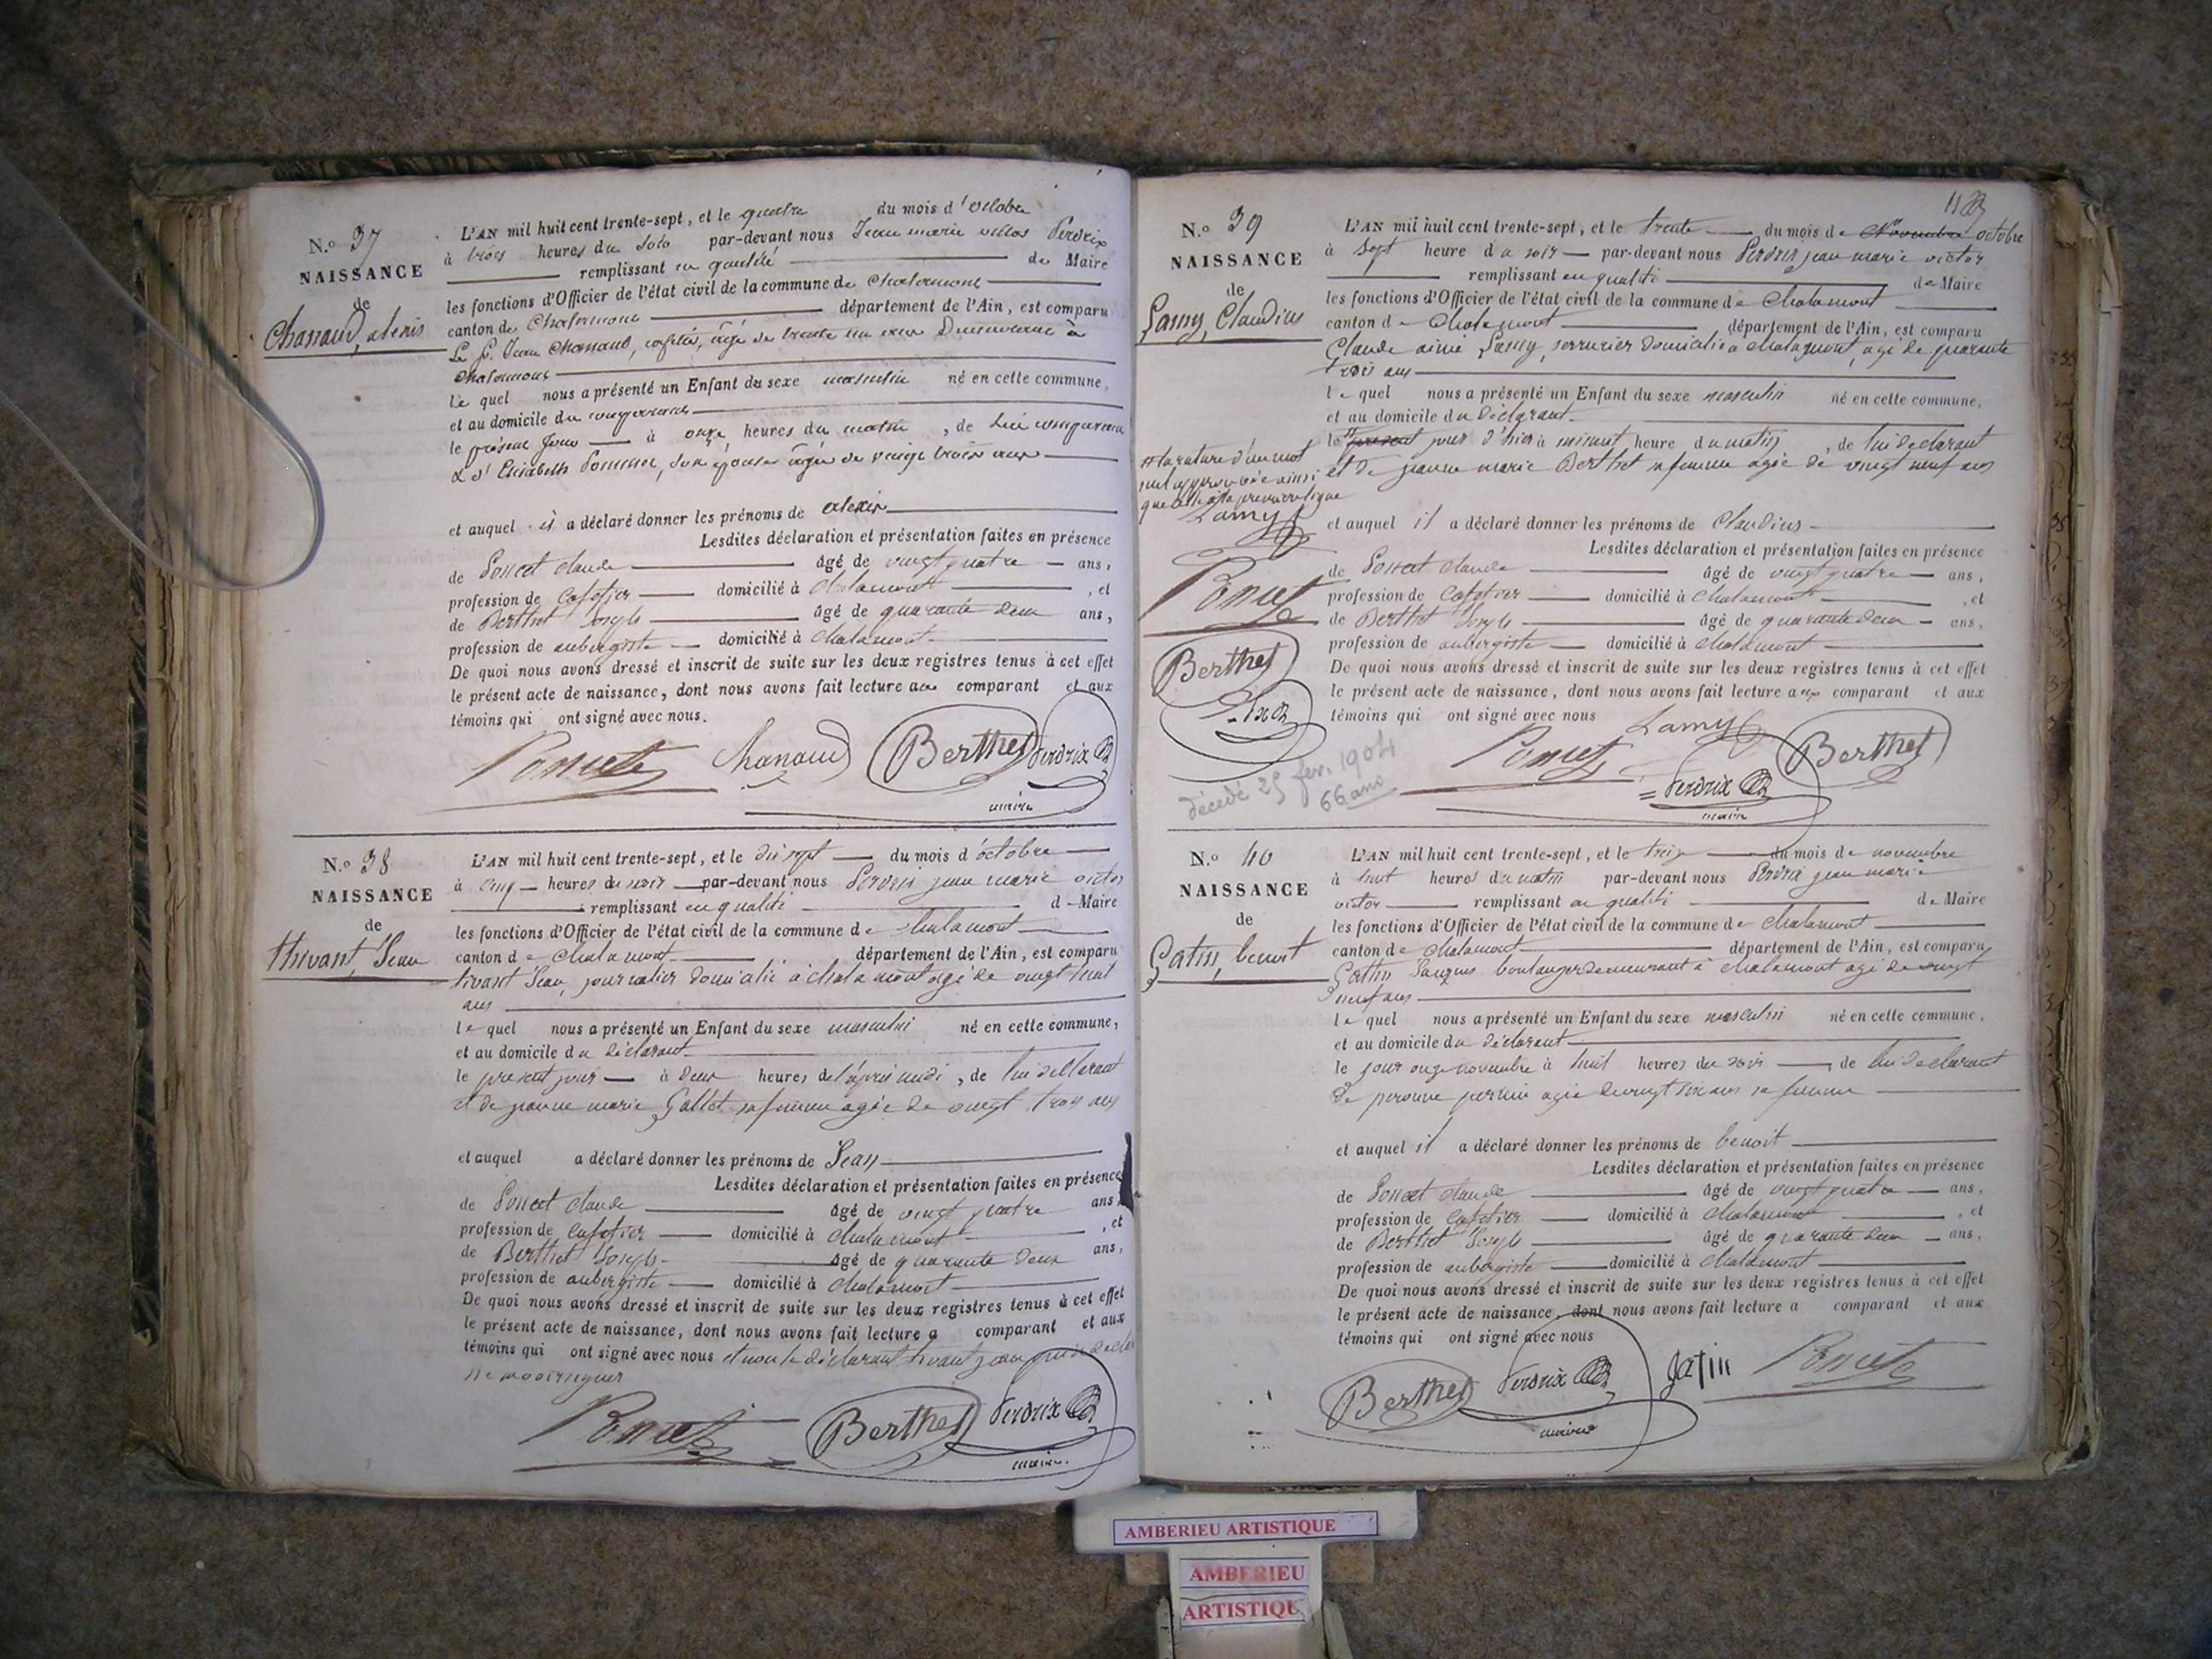 N.o 37
NAISSANCE
de
Chanaud, alexis
L'AN mil huit cent trente-sept, et le quatre du mois d'octobre
à trois heures du soir par-devant nous Jean marie victor Perdrix
remplissant en qualité de Maire
les fonctions d'Officier de l'état civil de la commune de Chalamont
canton de Chalamont département de l'Ain, est comparu
Le Jean Chanaud, âgé de trente un ans demeurant à
Chalamont
Le quel nous a présenté un Enfant du sexe masculin né en cette commune,
et au domicile du comparant
le présent jour à onze heures du matin, de lui comparant
& d'Elisabeth son épouse âgée de vingt trois ans
et auquel il a déclaré donner les prénoms de alexis
Lesdites déclaration et présentation faites en présence
de Poncet claude âgé de vingt quatre ans,
profession de cafetier domicilié à chalamont, et
de Berthet Joseph âgé de quarante deux ans,
profession de aubergiste domicilié à chalamont
De quoi nous avons dressé et inscrit de suite sur les deux registres tenus à cet effet
le présent acte de naissance, dont nous avons fait lecture aux comparant et aux
témoins qui ont signé avec nous.
Poncet Chanaud Berthet Perdrix
maire
N.o 38
NAISSANCE
de
thivant, Jean
L'AN mil huit cent trente-sept, et le dix sept du mois d'octobre
à cinq heures du soir par-devant nous Perdrix jean marie victor
remplissant en qualité de Maire
les fonctions d'Officier de l'état civil de la commune de chalamont
canton de chalamont département de l'Ain, est comparu
tivant Jean, journalier domicilié à chalamont agé de vingt huit
ans
le quel nous a présenté un Enfant du sexe masculin né en cette commune,
et au domicile du déclarant
le présent jour à deux heures de l'après midi, de lui déclarant
et de jeanne marie Gallet sa femme agée de vingt trois ans
et auquel a déclaré donner les prénoms de Jean
Lesdites déclaration et présentation faites en présence
de Poncet claude âgé de vingt quatre ans
profession de cafetier domicilié à chalamont, et
de Berthet Joseph âgé de quarante deux ans,
profession de aubergiste domicilié à chalamont
De quoi nous avons dressé et inscrit de suite sur les deux registres tenus à cet effet
le présent acte de naissance, dont nous avons fait lecture a comparant et aux
témoins qui ont signé avec nous et non le déclarant tivant jean
Poncet Berthet Perdrix
maire
N.o 39
NAISSANCE
de
Lamy, Claudius
L'AN mil huit cent trente-sept, et le trente du mois de Novembre octobre
à sept heure du soir par-devant nous Perdrix jean marie victor
remplissant en qualité de Maire
les fonctions d'Officier de l'état civil de la commune de Chalamont
canton de Chalamont département de l'Ain, est comparu
Claude aimé Lamy, serrurier domicilié à chalamont, agé de quarante
trois ans
le quel nous a présenté un Enfant du sexe masculin né en cette commune,
et au domicile du Déclarant
le présent jour d'hier à minuit heure du matin, de lui déclarant
et de jeanne marie Berthet sa femme agée de vingt neuf ans
la rature d'un mot
nul approuvée ainsi
que celle de la première ligne
Lamy
Poncet
Berthet
et auquel il a déclaré donner les prénoms de Claudius
Lesdites déclaration et présentation faites en présence
de Poncet claude âgé de vingt quatre ans,
profession de cafetier domicilié à chalamont, et
de Berthet Joseph âgé de quarante deux ans,
profession de aubergiste domicilié à chalamont
De quoi nous avons dressé et inscrit de suite sur les deux registres tenus à cet effet
le présent acte de naissance, dont nous avons fait lecture aux comparant et aux
témoins qui ont signé avec nous Lamy
Poncet Berthet
Perdrix
maire
décédé 25 fev. 1904
66 ans
N.o 40
NAISSANCE
de
Gatin, benoit
L'AN mil huit cent trente-sept, et le treize du mois de novembre
à huit heures du matin par-devant nous Perdrix jean marie
victor remplissant en qualité de Maire
les fonctions d'Officier de l'état civil de la commune de chalamont
canton de chalamont département de l'Ain, est comparu
Gattin Jacques boulanger demeurant à chalamont agé de vingt
neuf ans
le quel nous a présenté un Enfant du sexe masculin né en cette commune,
et au domicile du déclarant
le jour onze novembre à huit heures du soir, de lui déclarant
de perrine perrin agée de vingt six ans sa femme
et auquel il a déclaré donner les prénoms de benoit
Lesdites déclaration et présentation faites en présence
de Poncet claude âgé de vingt quatre ans,
profession de cafetier domicilié à chalamont, et
de Berthet Joseph âgé de quarante deux ans,
profession de aubergiste domicilié à chalamont
De quoi nous avons dressé et inscrit de suite sur les deux registres tenus à cet effet
le présent acte de naissance, dont nous avons fait lecture a comparant et aux
témoins qui ont signé avec nous
Berthet Perdrix gatin Poncet
maire
AMBERIEU ARTISTIQUE
AMBERIEU
ARTISTIQUE